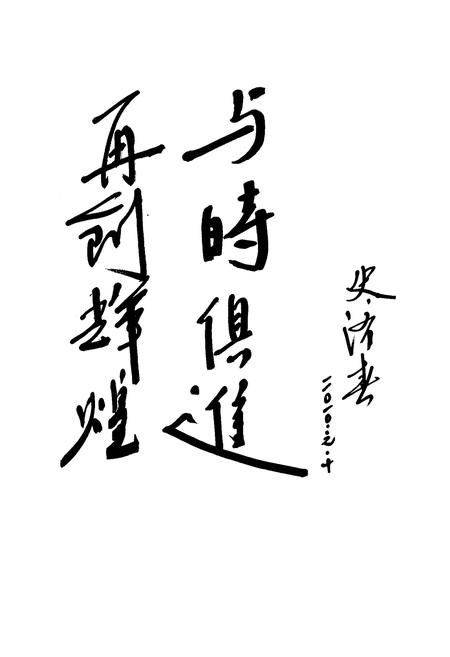 与時俱進
再創輝煌
史济春
二〇一〇